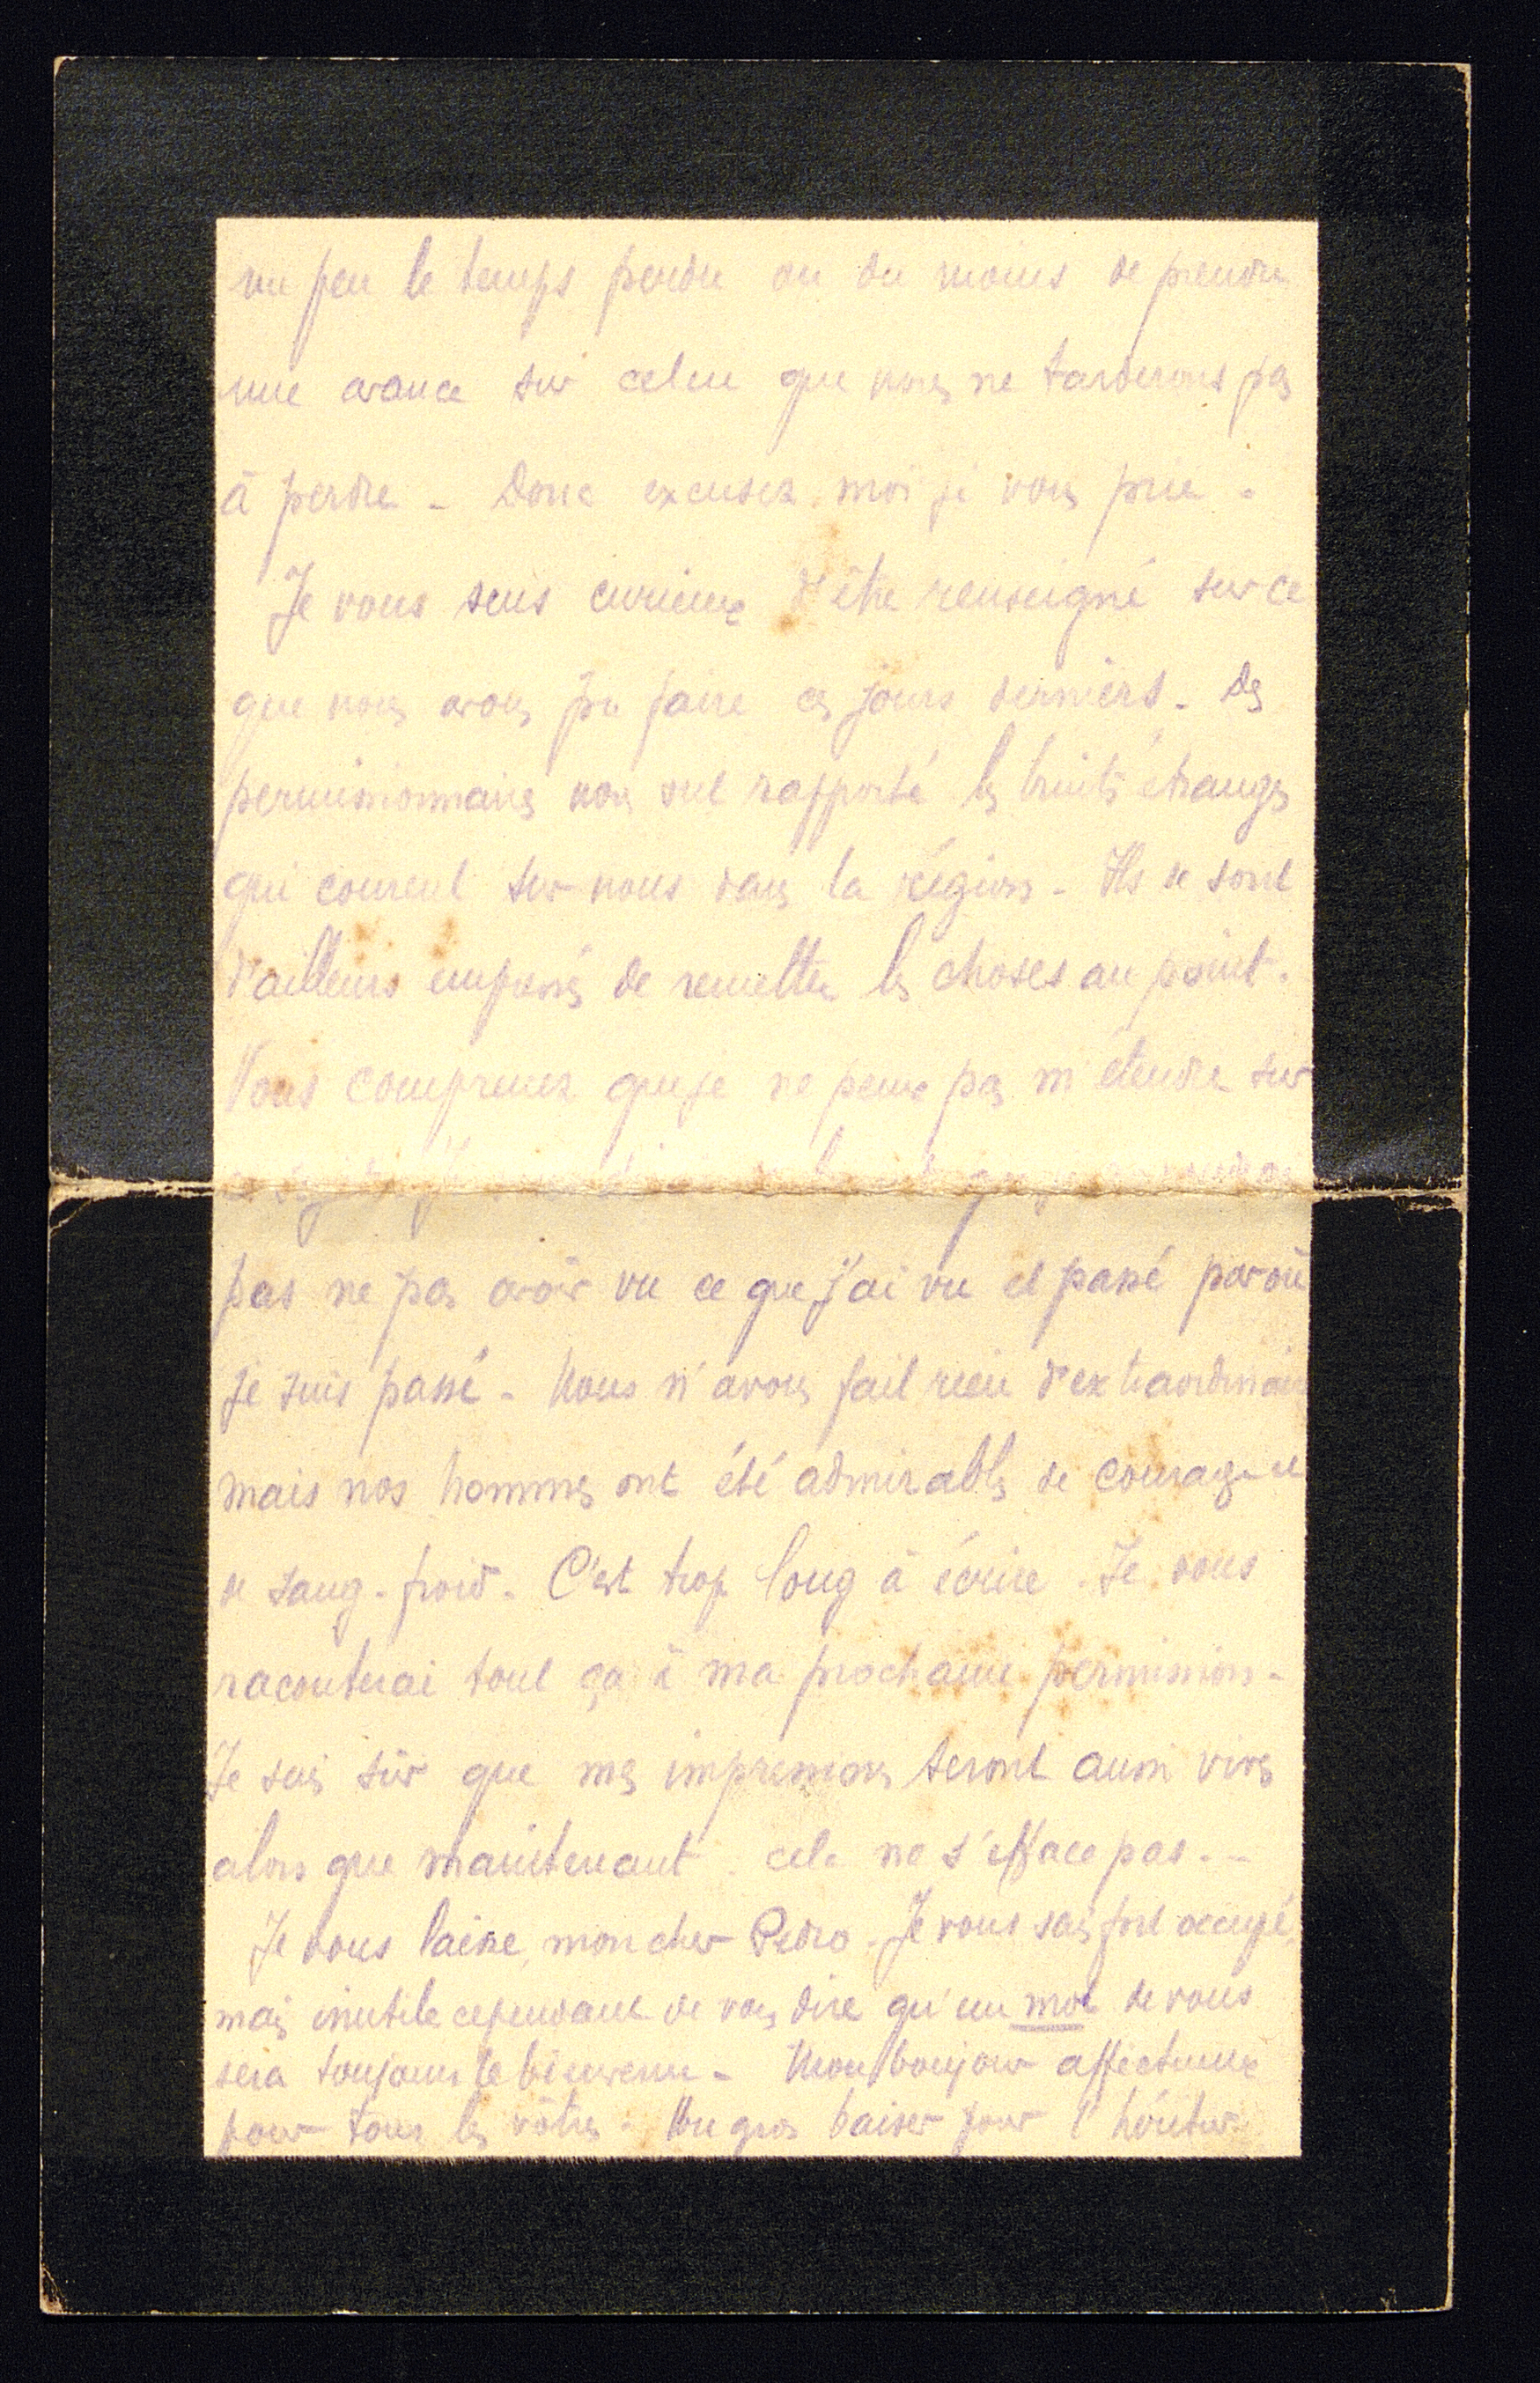 un peu le temps perdu ou du moins de prendre
une avance sur celui que nous ne tarderons pas
à perdre - Donc excusez moi je vous prie -
Je vous sens curieux d'être renseigné sur ce
que nous avons pu faire ces jours derniers - Des
permissionnaires nous ont rapporté les bruits étranges
qui courent sur nous dans la région - Ils se sont
d'ailleurs empressés de remettre les choses au point.
Vous comprenez que je ne peux pas m'étendre sur
pas ne pas avoir vu ce que j'ai vu et passé par où
je suis passé - Nous n'avons fait rien d'extraordinaire
mais nos hommes ont été admirables de courage et
de sang-froid - C'est trop long à écrire. Je vous
raconterai tout ça à ma prochaine permission -
Je suis sûr que mes impressions seront aussi vives
alors que maintenant. cela ne s'efface pas. -
Je vous laisse, mon cher Pedro. Je vous sais fort occupé,
mais inutile cependant de vous dire qu'un mot de vous
sera toujours le bienvenu - Mon bonjour affectueux
pour tous les vôtres - Un gros baiser pour l'héritier